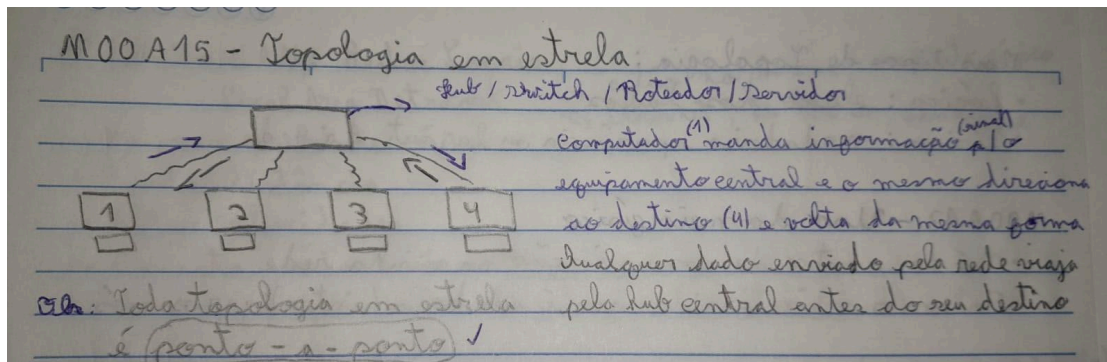 M00A15 - Topologia em estrela
Hub / switch / Roteador / servidor
computador (1) manda informação (sinal) p/ o
equipamento central e o mesmo direciona
ao destino (4) e volta da mesma forma
1 2 3 4
Qualquer dado enviado pela rede viaja
pelo hub central antes do seu destino
Obs: Toda topologia em estrela
é ponto - a - ponto